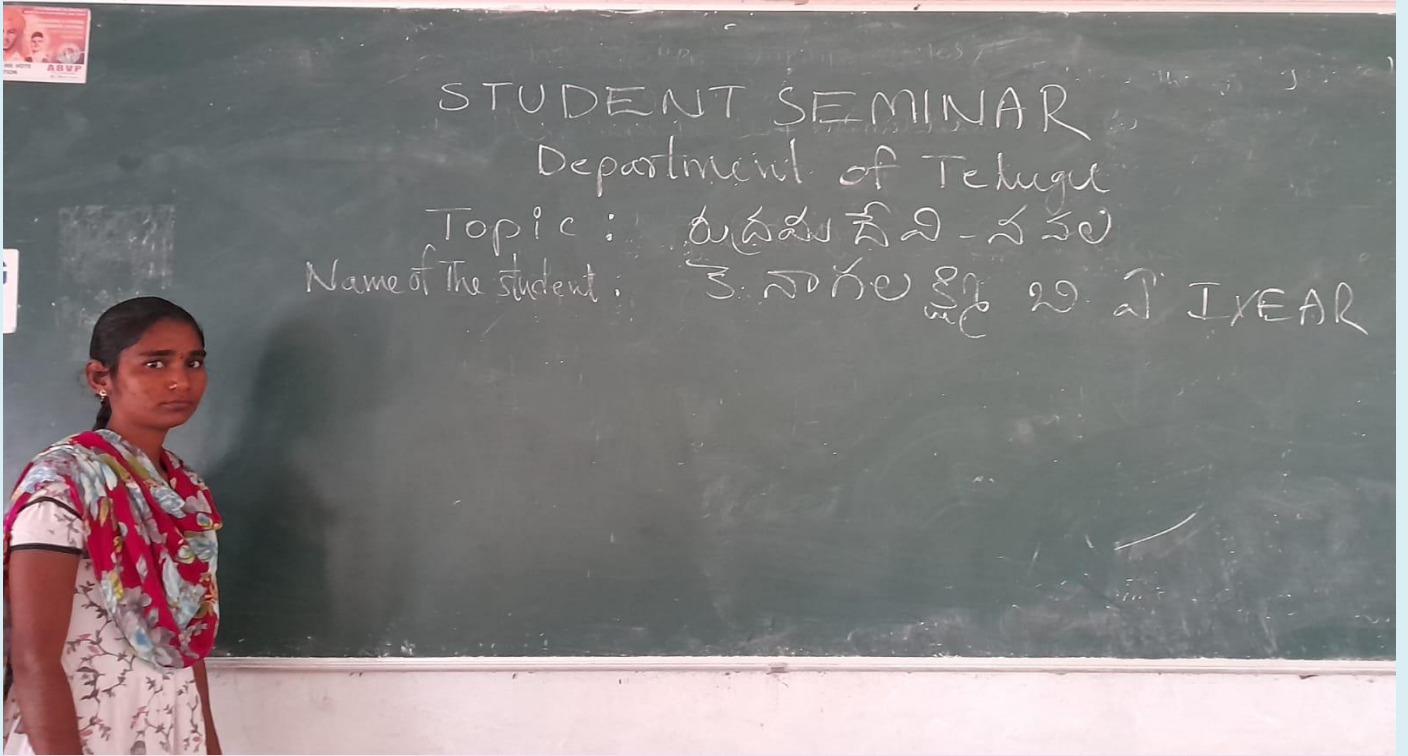 ABVP
STUDENT SEMINAR
Department of Telugu
Topic : రుద్రమదేవి - నవల
Name of The student : కె. నాగలక్ష్మి బి. ఏ I YEAR